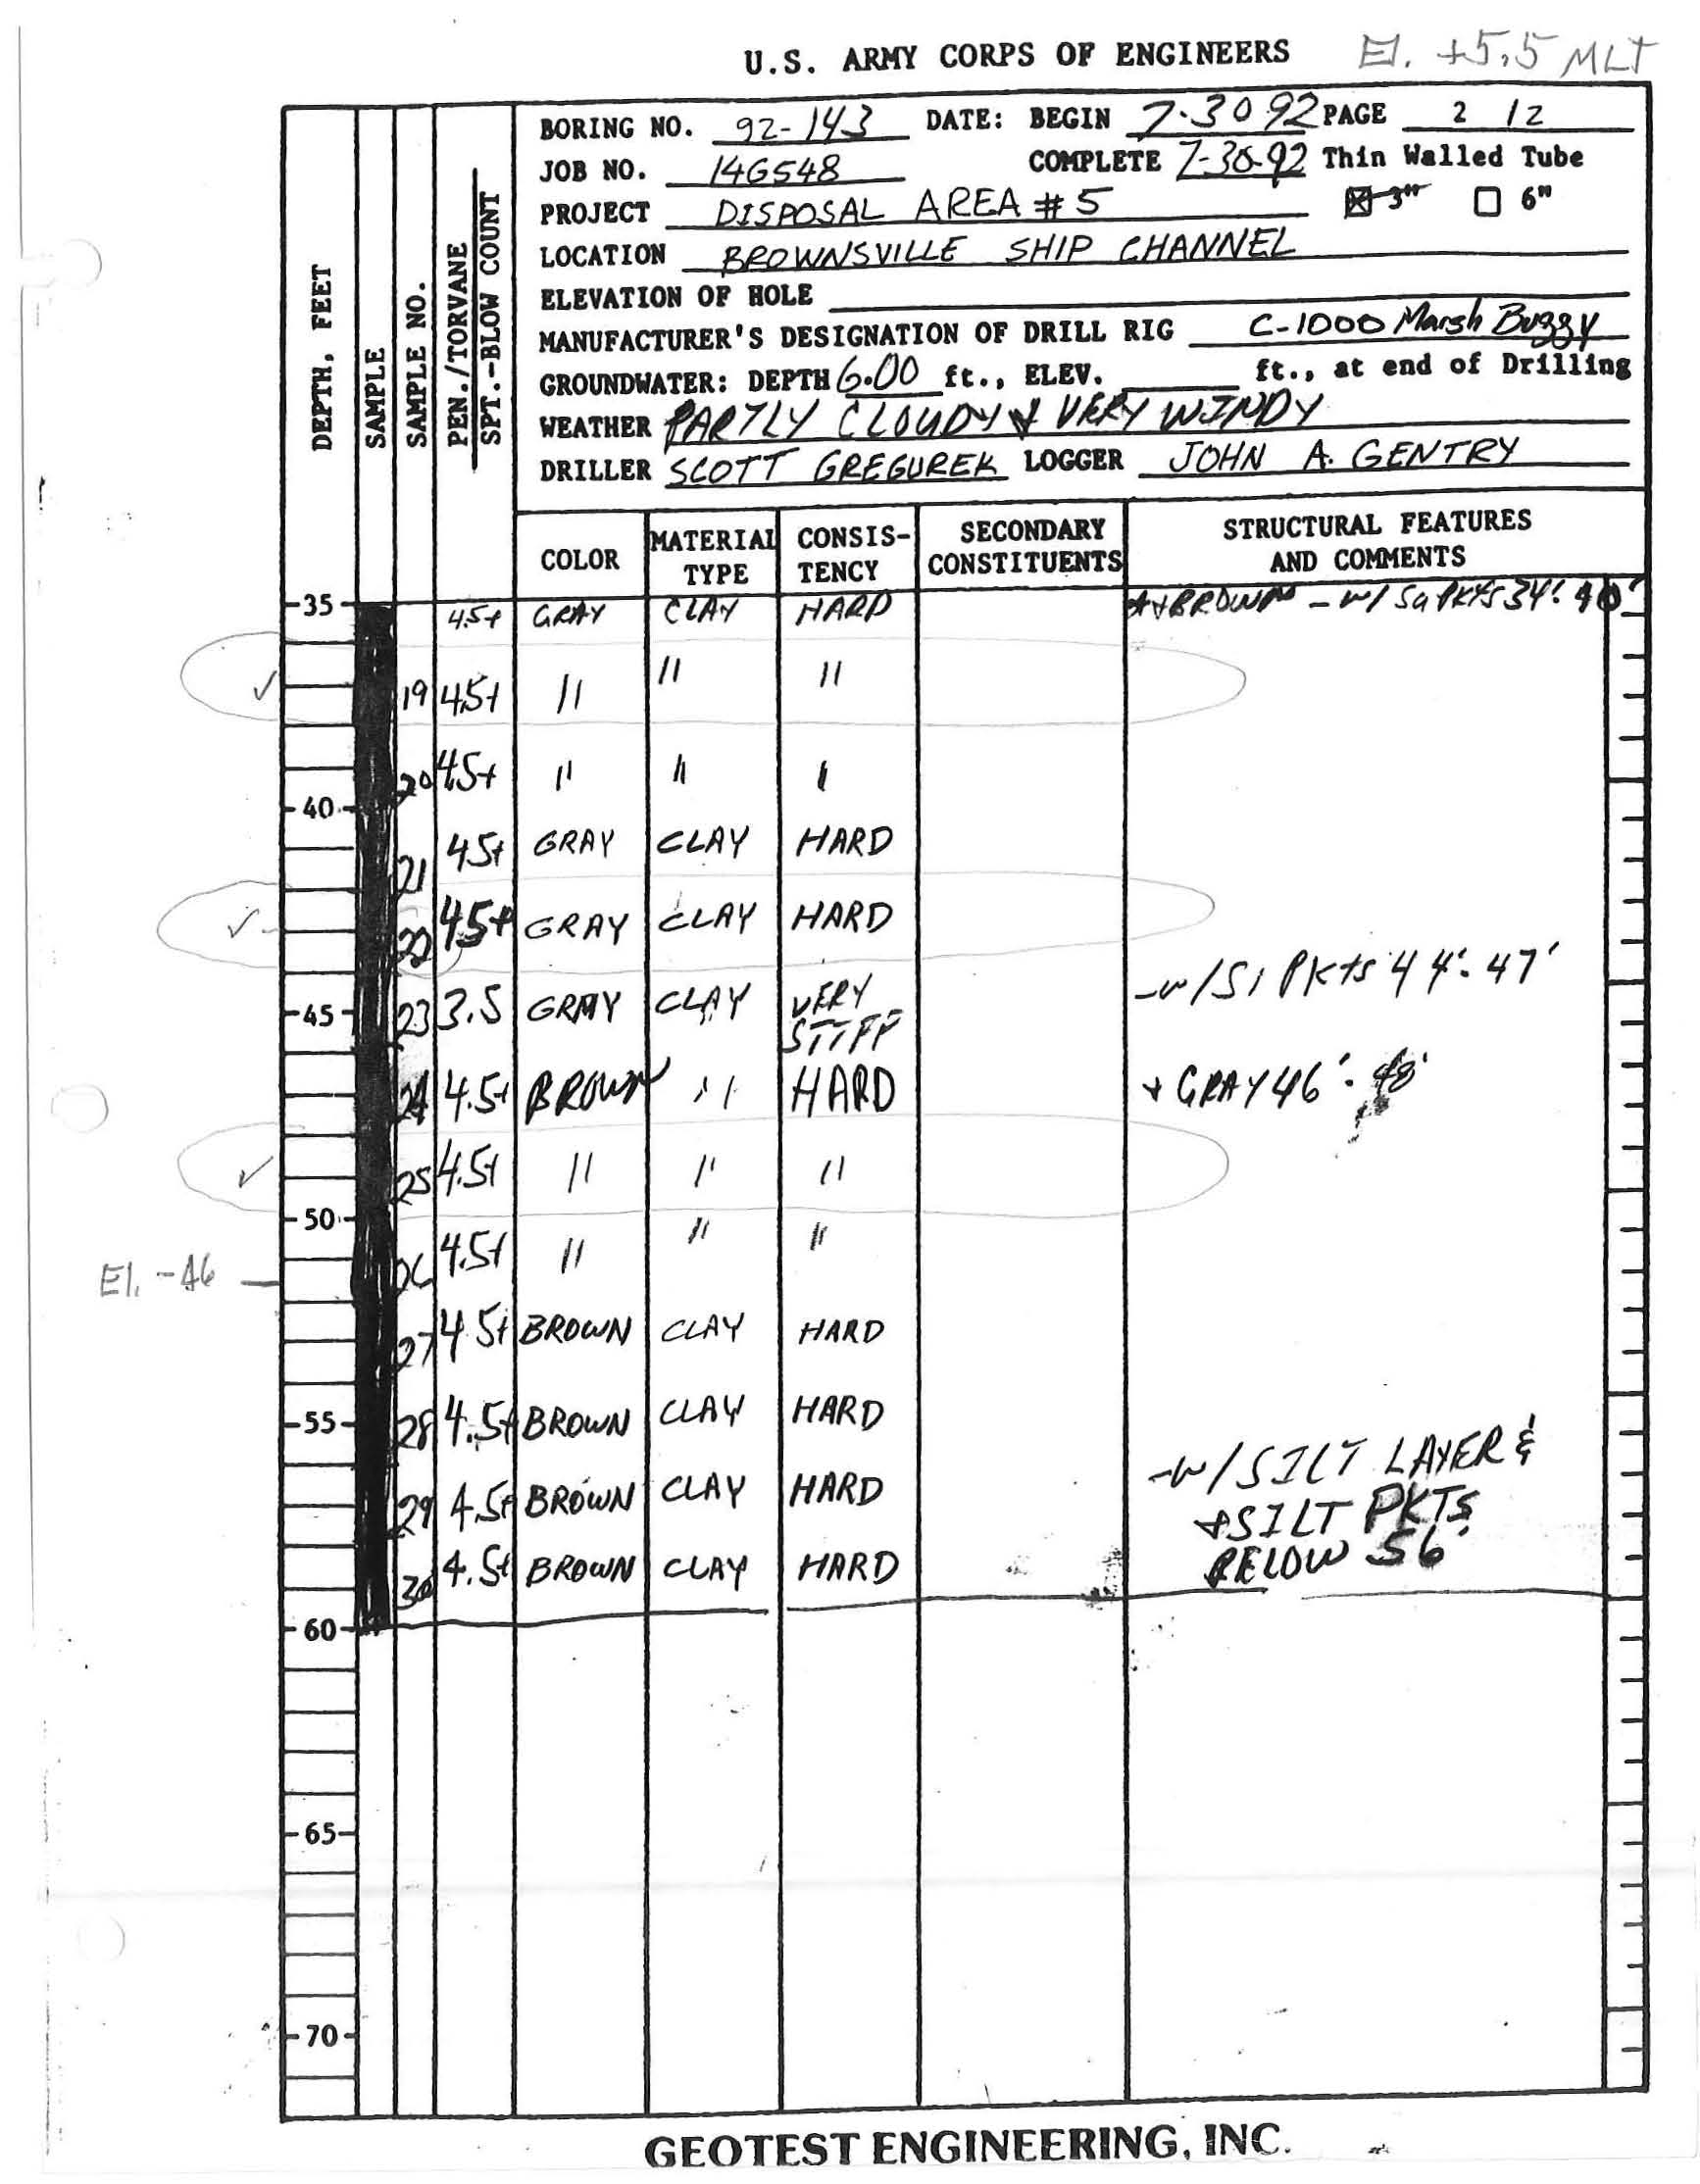 U.S. ARMY CORPS OF ENGINEERS El. +5.5 MLT
BORING NO. 92-143 DATE: BEGIN 7-30 92 PAGE 2 / 2
JOB NO. 14G548 COMPLETE 7-30-92 Thin Walled Tube
PROJECT DISPOSAL AREA #5 ☒ 3" ☐ 6"
LOCATION BROWNSVILLE SHIP CHANNEL
ELEVATION OF HOLE
MANUFACTURER'S DESIGNATION OF DRILL RIG C-1000 Marsh Buggy
GROUNDWATER: DEPTH 6.00 ft., ELEV. ft., at end of Drilling
WEATHER PARTLY CLOUDY & VERY WINDY
DRILLER SCOTT GREGUREK LOGGER JOHN A. GENTRY
DEPTH, FEET
SAMPLE
SAMPLE NO.
PEN./TORVANE
SPT.-BLOW COUNT
COLOR MATERIAL TYPE CONSIS-TENCY SECONDARY CONSTITUENTS STRUCTURAL FEATURES AND COMMENTS
35 4.5+ GRAY CLAY HARD BROWN - w/ Sa Pkts 34'. 40'
✓ 19 4.5+ " " "
20 4.5+ " " "
40
21 4.5+ GRAY CLAY HARD
✓ 22 4.5+ GRAY CLAY HARD
-w/Si Pkts 44'- 47'
45 23 3.5 GRAY CLAY VERY STIFF
24 4.5+ BROWN " HARD + GRAY 46'- 48'
✓ 25 4.5+ " " "
50
El. -46 26 4.5+ " " "
27 4.5+ BROWN CLAY HARD
55 28 4.5+ BROWN CLAY HARD
-w/SILT LAYER &
29 4.5+ BROWN CLAY HARD +SILT PKTS
30 4.5+ BROWN CLAY HARD BELOW 56'
60
65
70
GEOTEST ENGINEERING, INC.